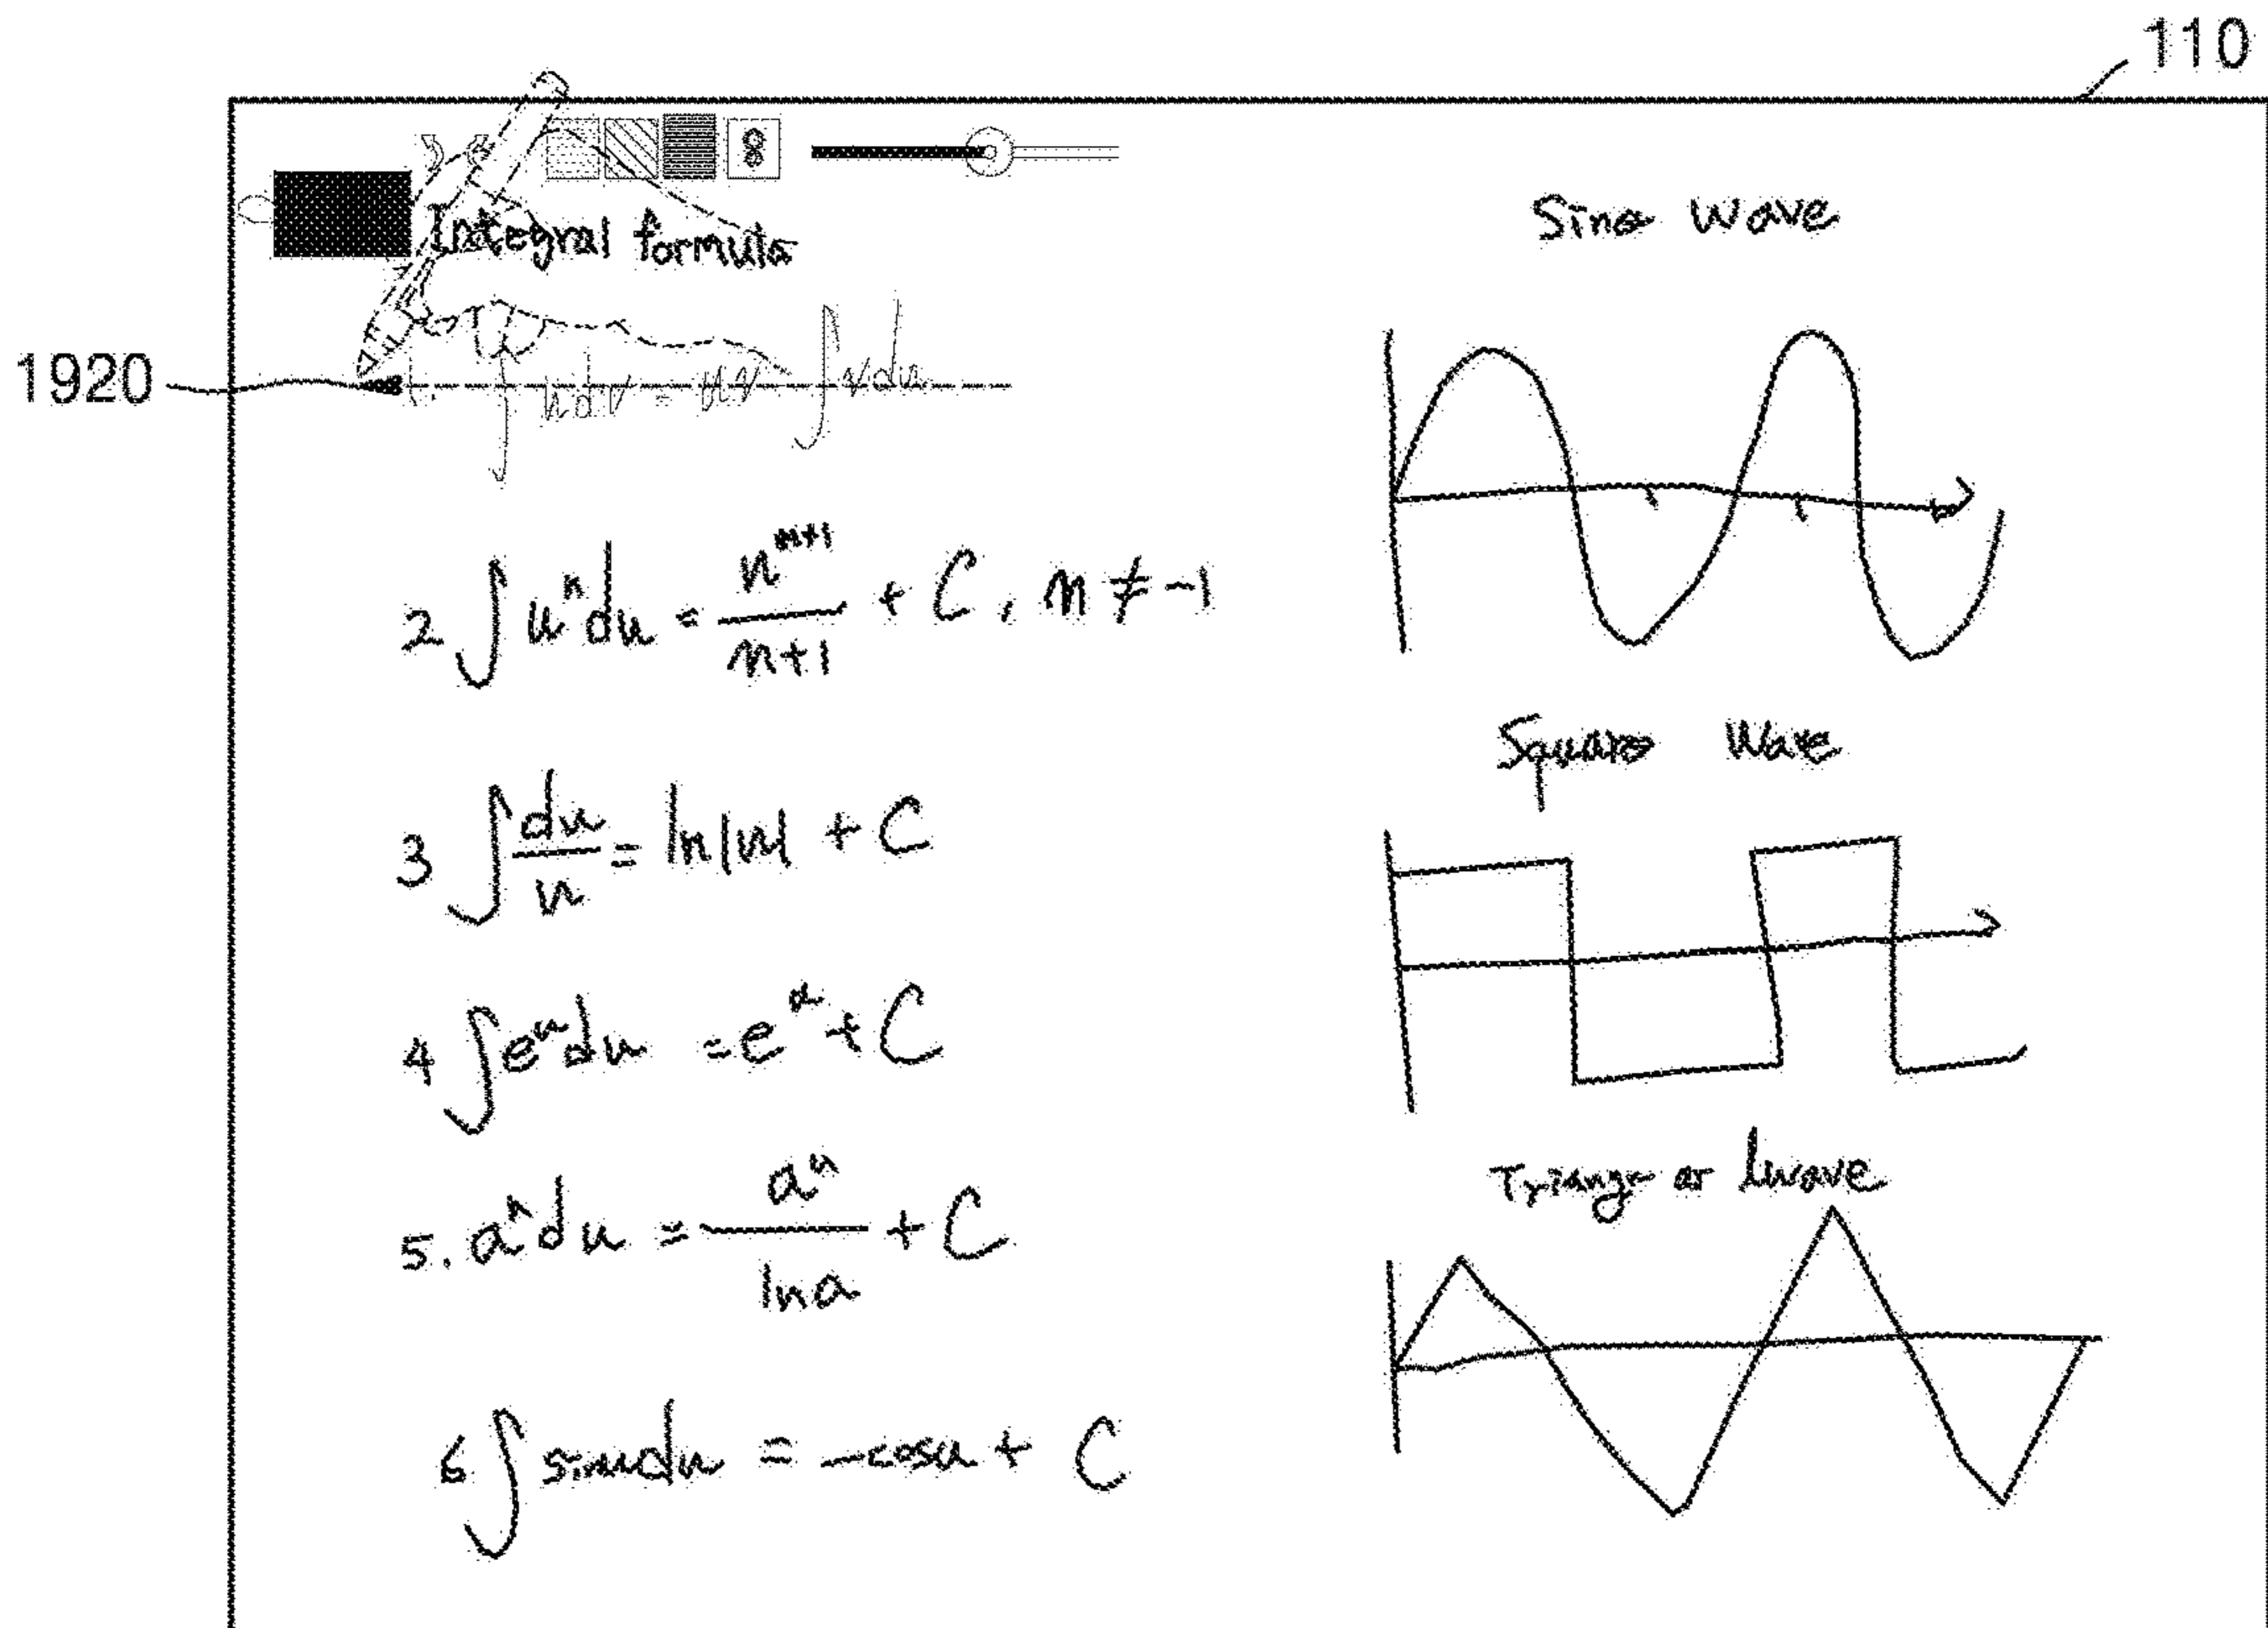 110
Integral formula
1920
1. ∫ udv = uv ∫ vdu
2 ∫ uⁿdu = uⁿ⁺¹/n+1 + C, n ≠ -1
3 ∫ du/u = ln|u| + C
4 ∫ eᵘdu = eᵘ + C
5. aⁿdu = aᵘ/lna + C
6 ∫ sinudu = -cosu + C
Sine wave
Square Wave
wave